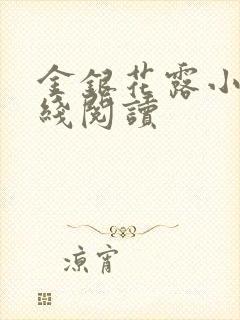 金銀花露小
綫閱讀
涼宵